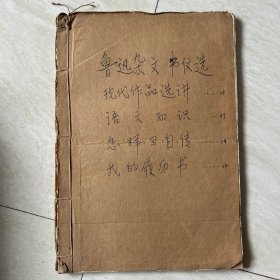 鲁迅杂文书仅选
现代作品选评……
语文知识……
怎样写自传……
我的履历书……